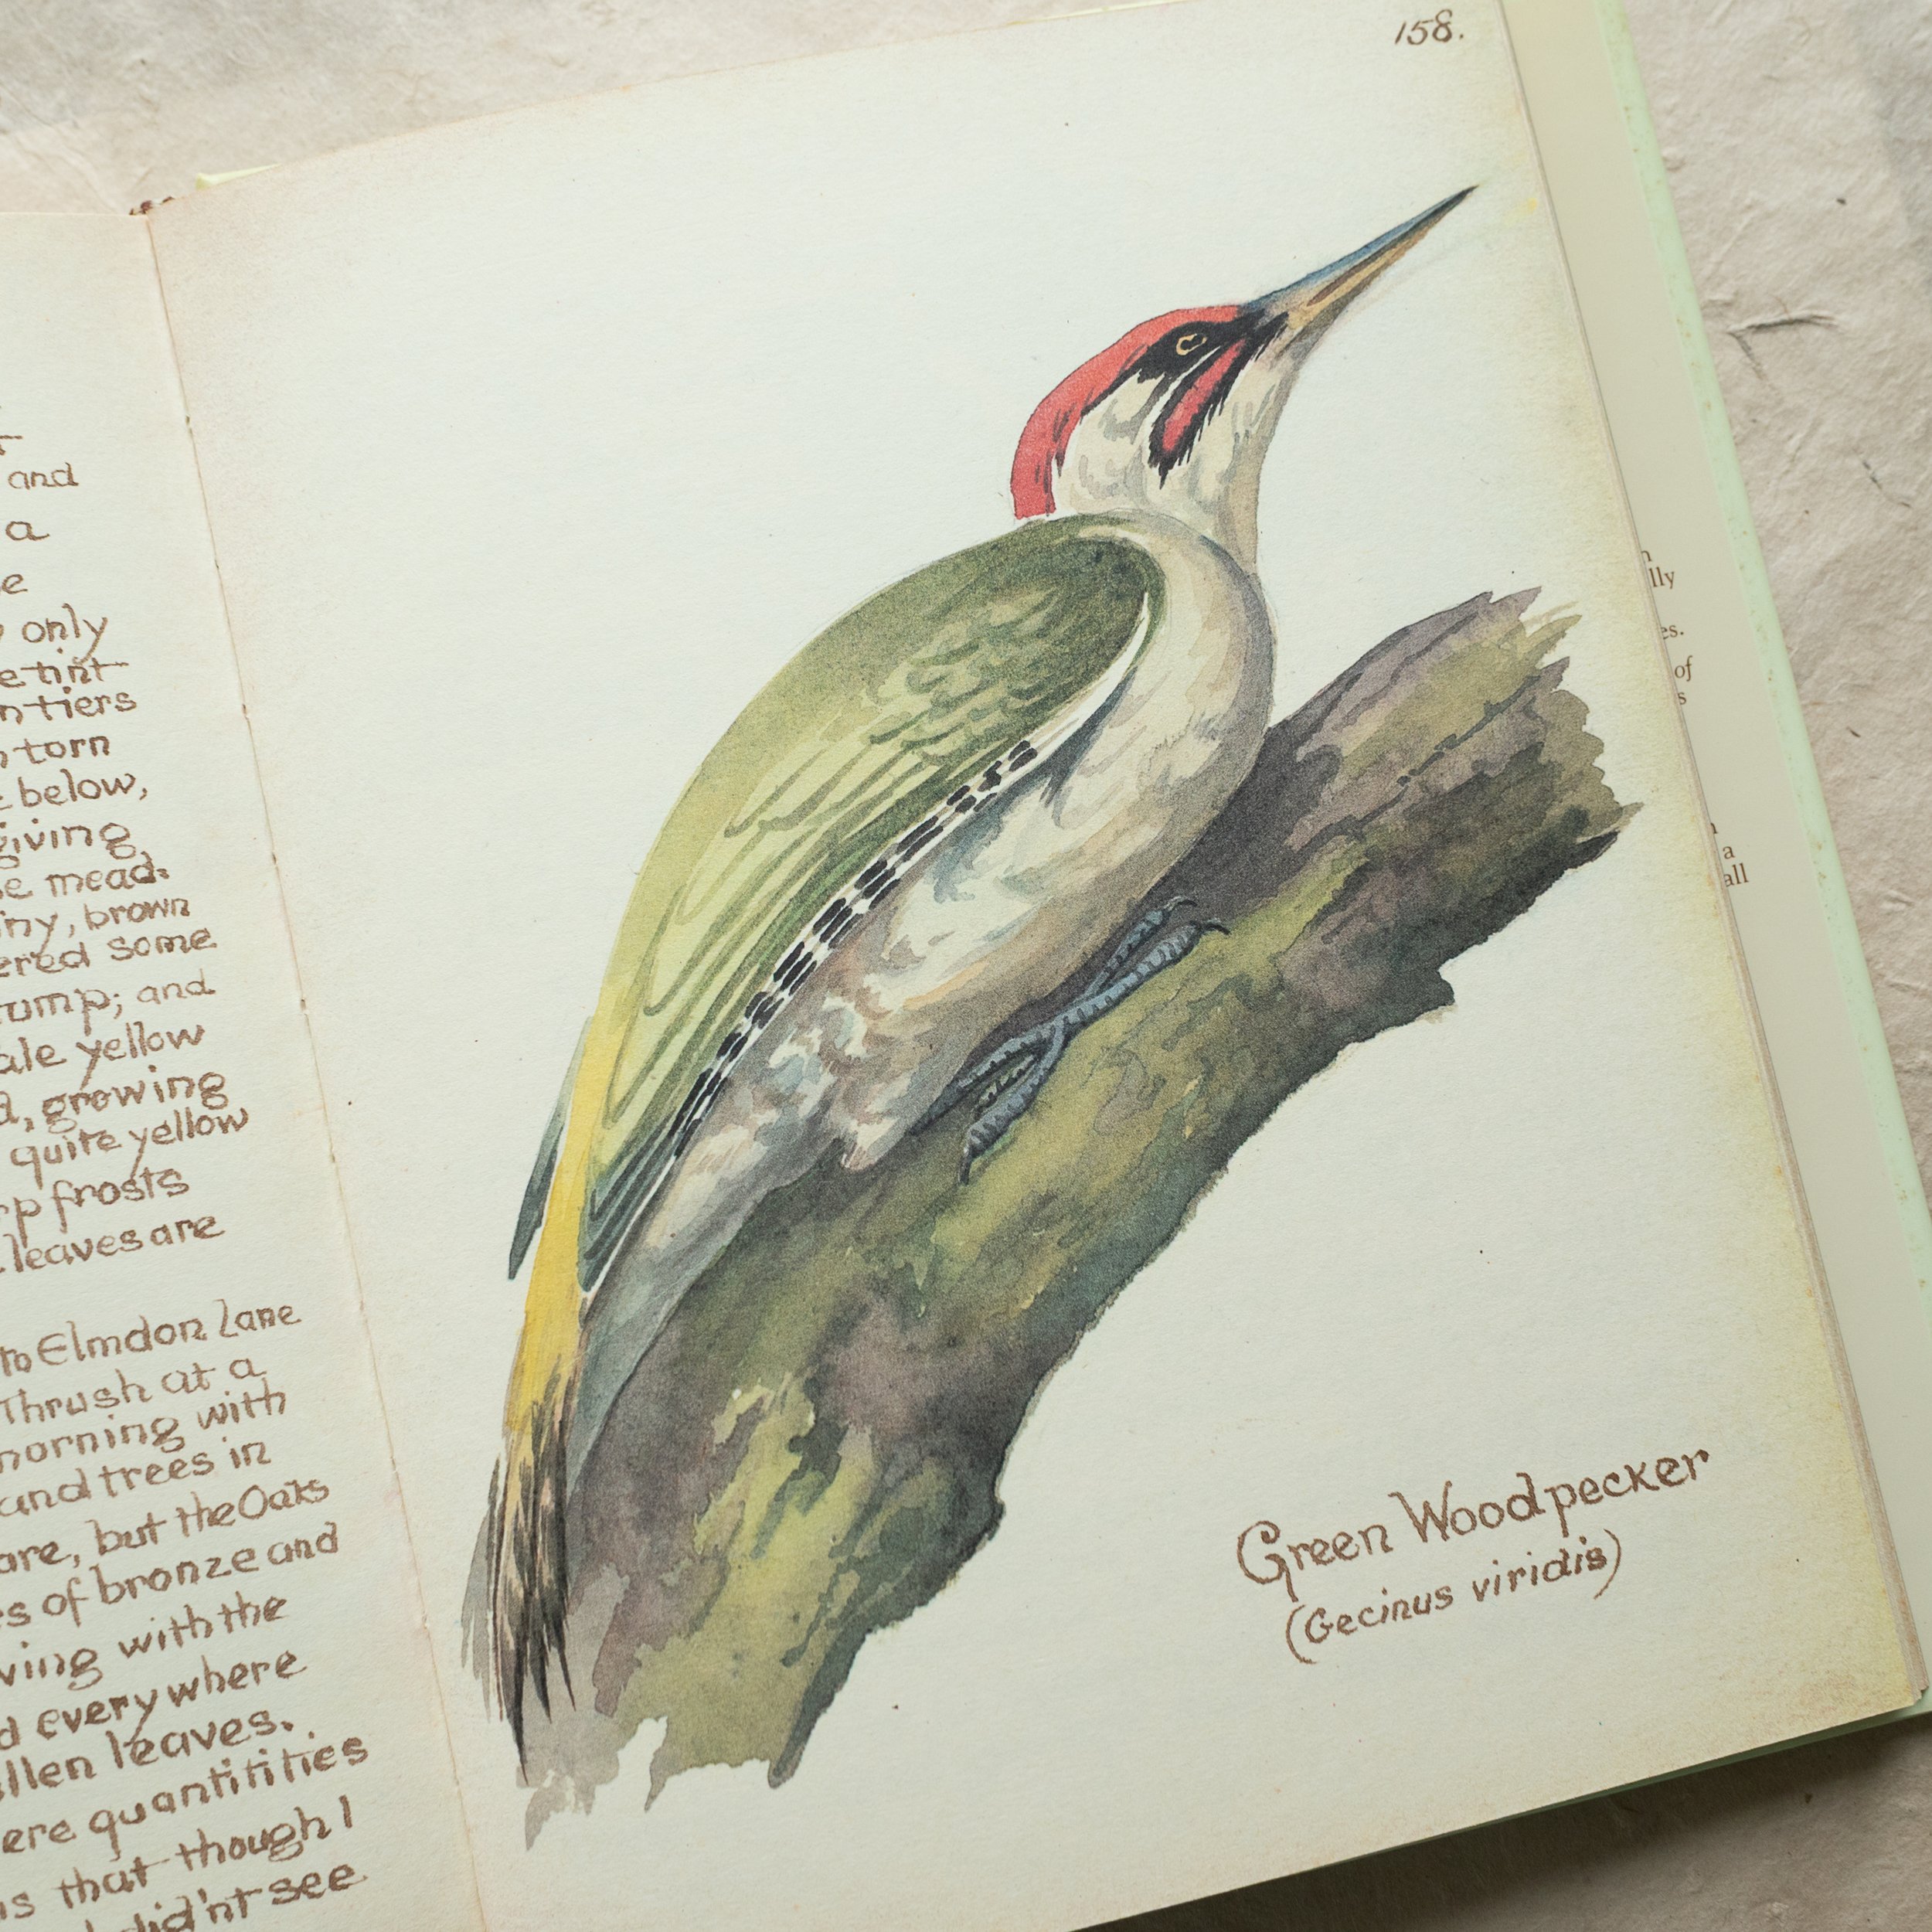 and
a
only
tint
tiers
torn
below,
giving
mead=
brown
some
and
yellow
growing
quite yellow
frosts
leaves are
to Elmdon Lane
Thrush at a
morning with
and trees in
are, but the Oaks
of bronze and
with the
everywhere
leaves.
quantitities
that though I
did'nt see
158.
Green Woodpecker
(Gecinus viridis)
of
a
all